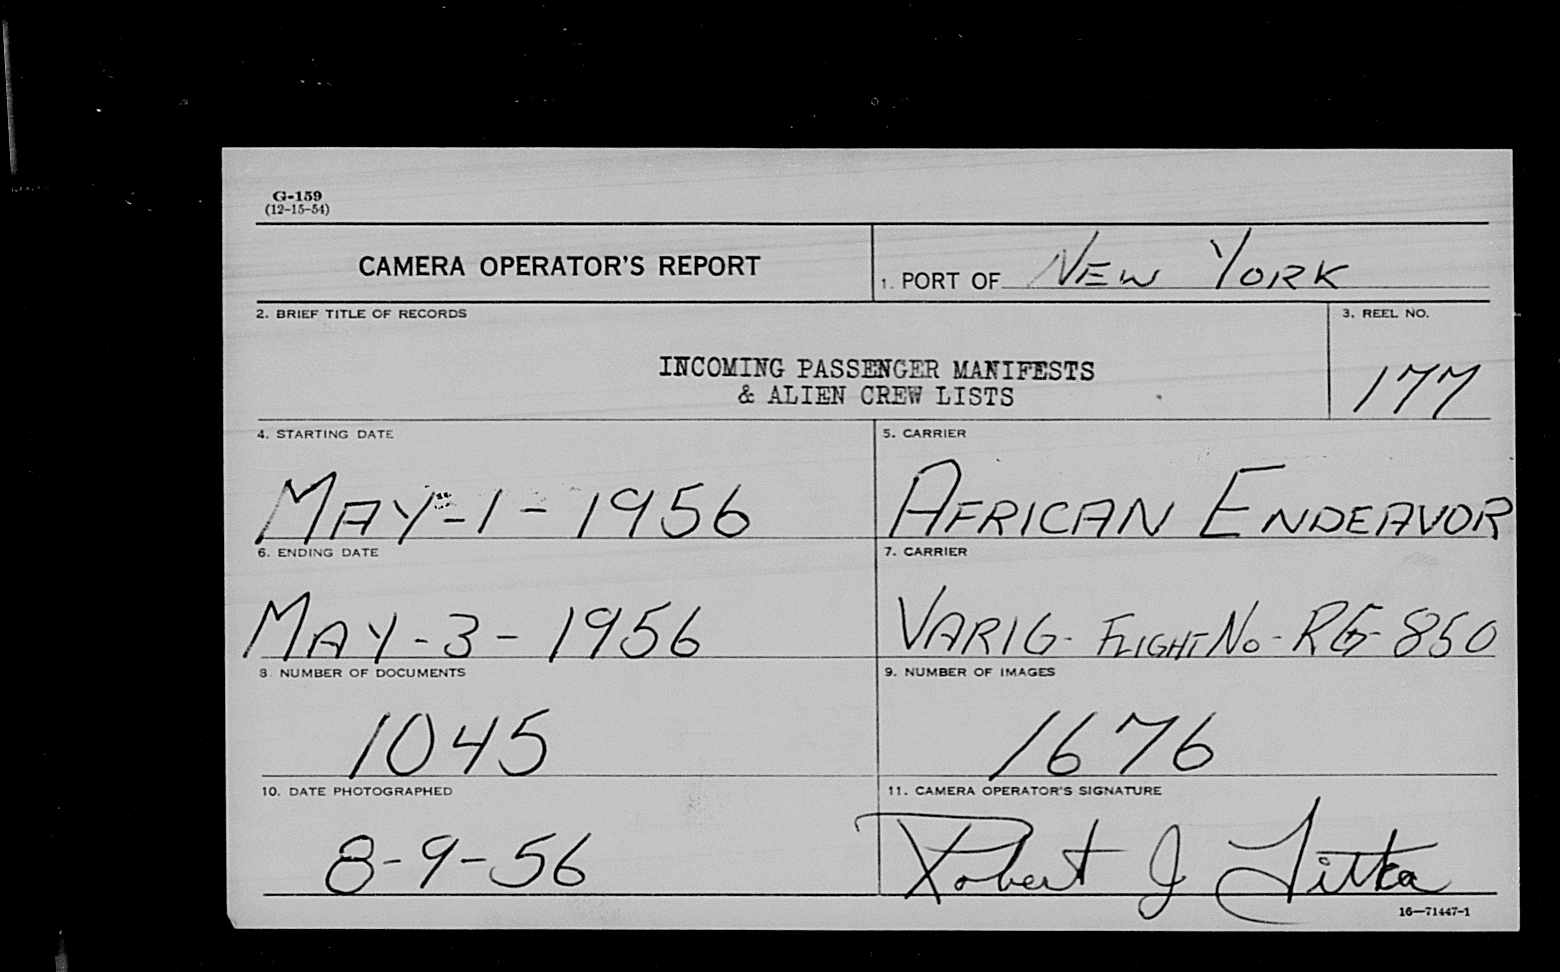 G-159
(12-15-54)
CAMERA OPERATOR'S REPORT
1. PORT OF NEW YORK
2. BRIEF TITLE OF RECORDS
3. REEL NO.
INCOMING PASSENGER MANIFESTS
& ALIEN CREW LISTS
177
4. STARTING DATE
5. CARRIER
MAY-1-1956
AFRICAN ENDEAVOR
6. ENDING DATE
7. CARRIER
MAY-3-1956
VARIG- FLIGHT No-RG-850
8. NUMBER OF DOCUMENTS
9. NUMBER OF IMAGES
1045
1676
10. DATE PHOTOGRAPHED
11. CAMERA OPERATOR'S SIGNATURE
8-9-56
Robert J
16—71447-1